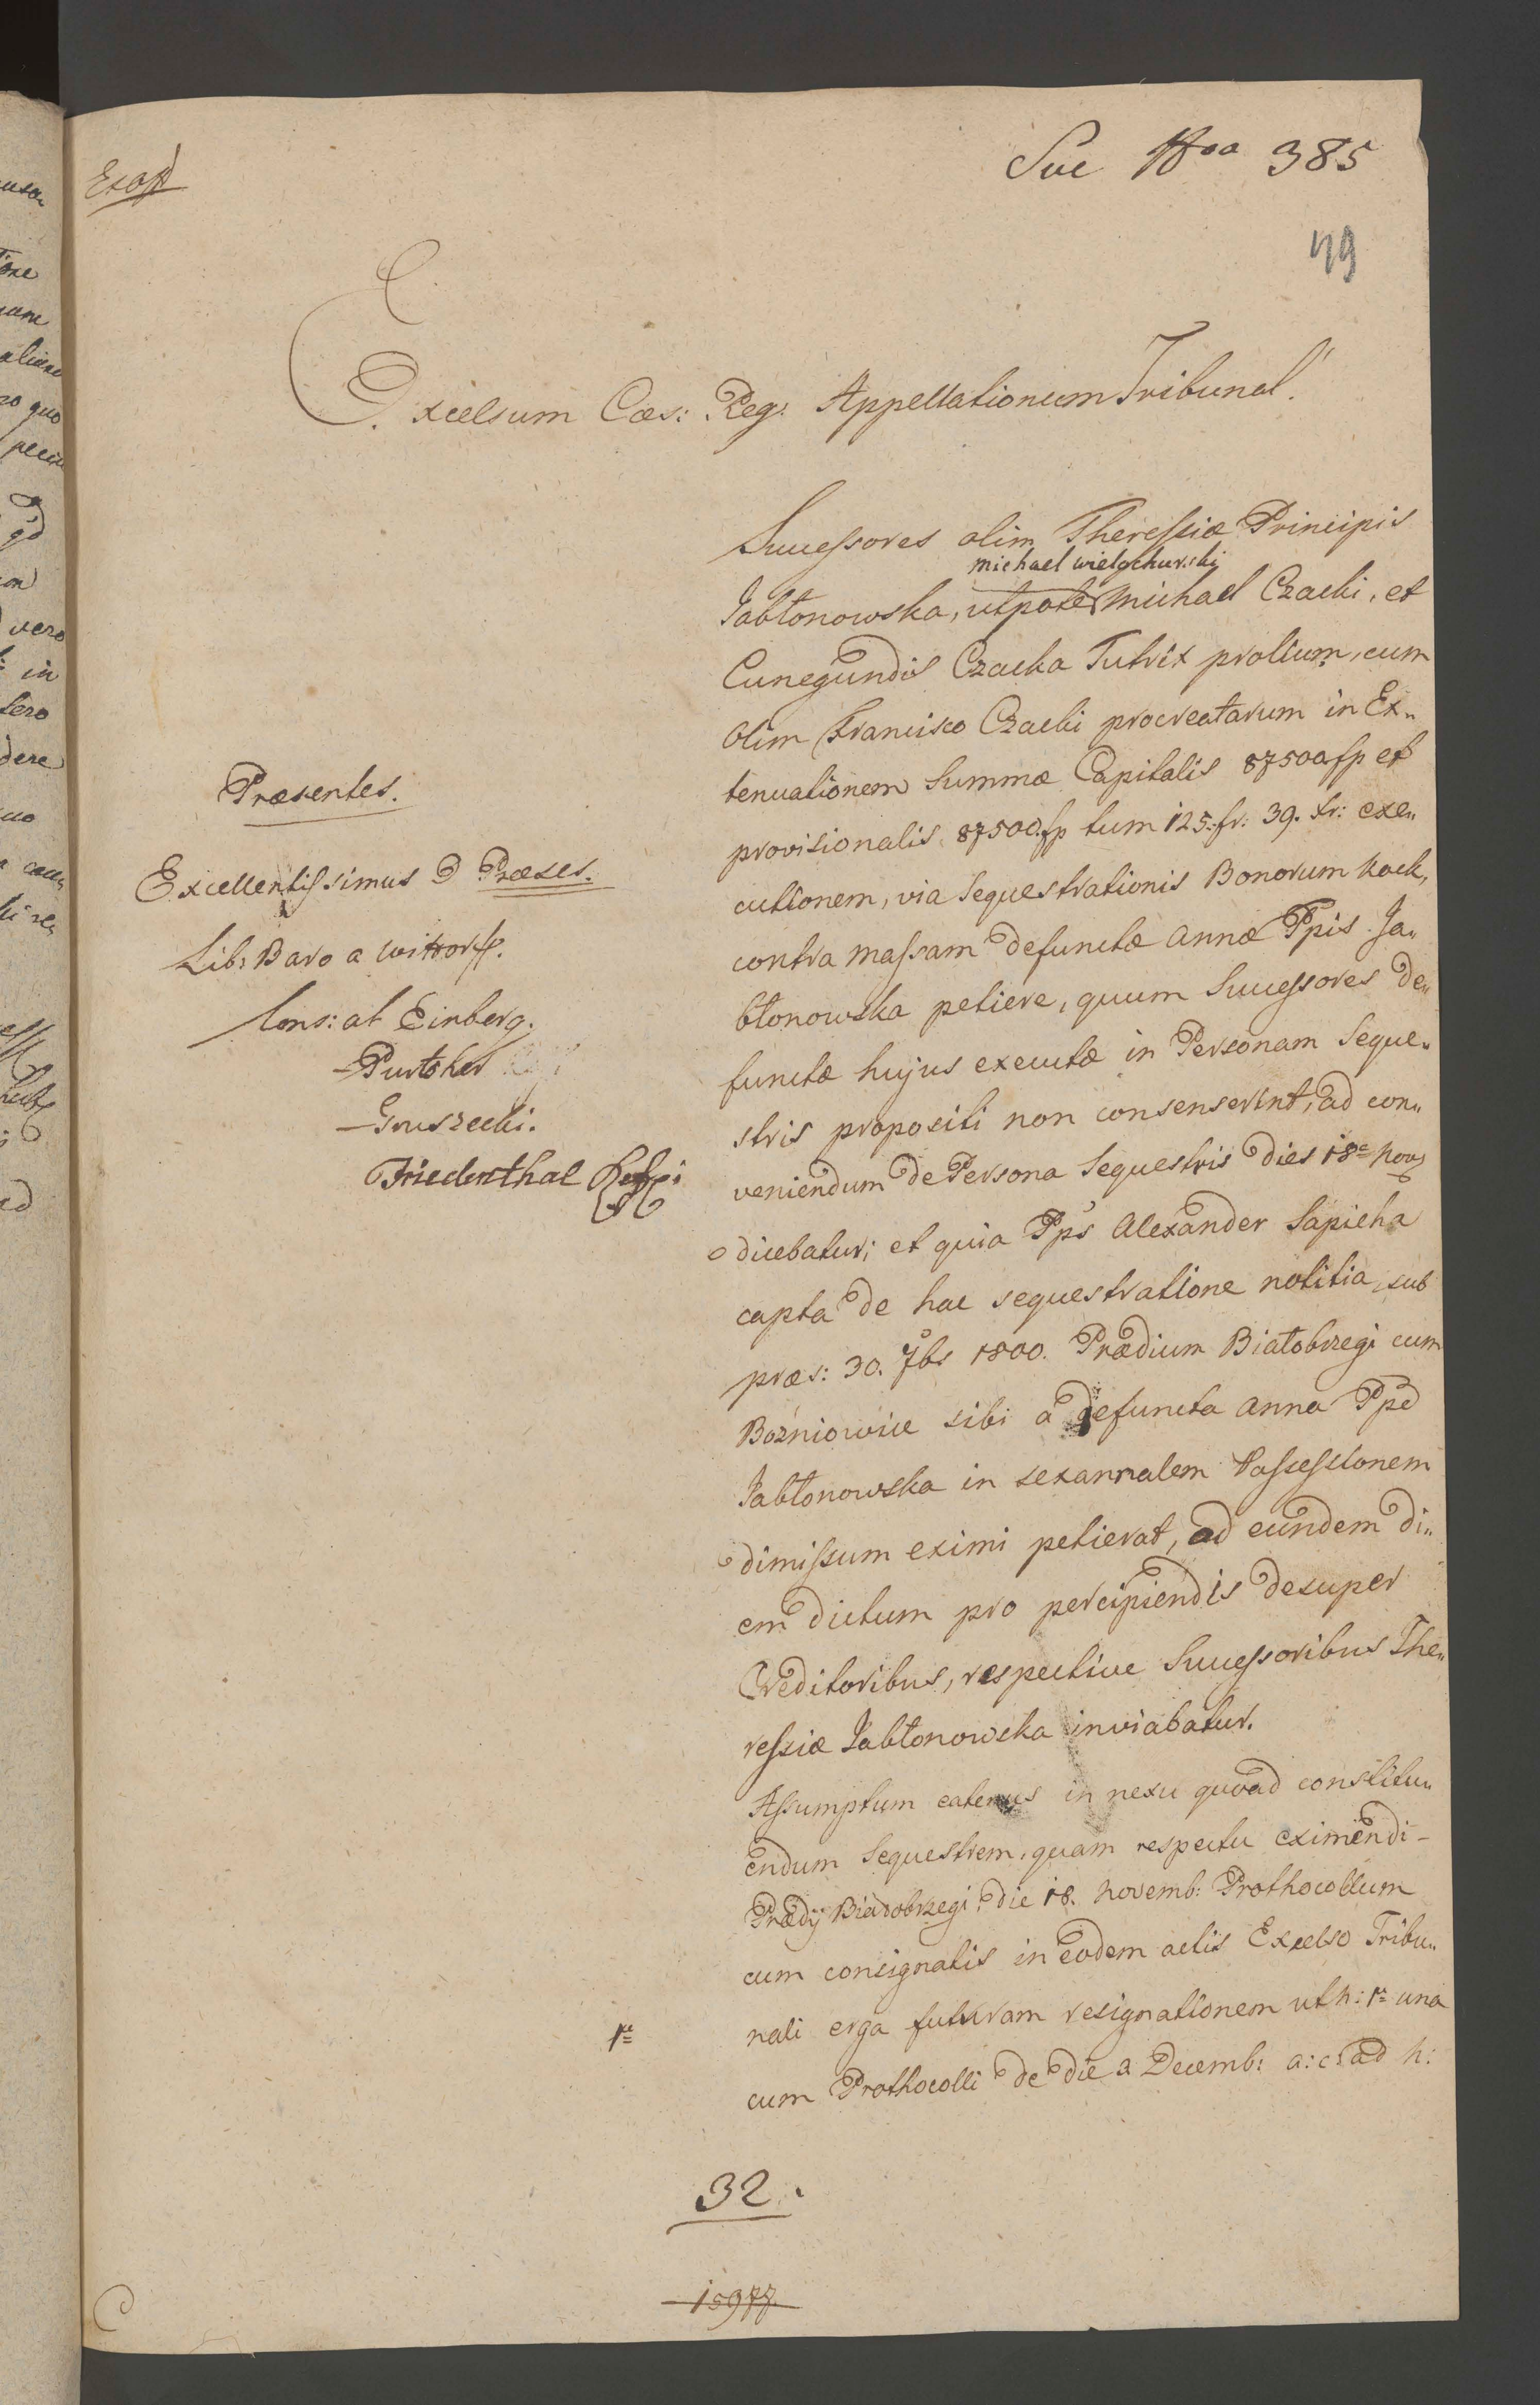 385
49
Excelsum Cæs: Reg: Appellationum Tribunal!
Præsentes.
Excellentissimus D Præses.
Lib: Baro a Wittorff.
Cons: ab Einberg.
- Purtsher
- Gruszecki.
Friedenthal
Successores olim Theressiæ Principis
michael wielgehurski
Jabłonowska, utpote Michael Czacki, et
Cunegundis Czacka Tutrix prolium, cum
olim Francisco Czacki procreatarum in Ex„
tenuationem Summæ Capitalis 87500 fp et
provisionalis 87500. fp tum 125. fr: 39. xr: exe„
cutionem, via Sequestrationis Bonorum Kock,
contra massam defunctæ Annæ Ppis Ja„
błonowska petiere, quum Successores de„
functæ hujus executæ in Personam Seque„
stris propositi non consenserint, ad con„
veniendum de Persona Sequestris dies 18a Nov
dicebatur; et quia Pps Alexander Sapieha
capta de hac sequestratione notitia, sub
præs: 30. 7bs 1800. Prædium Białobrzegi cum
Bożniowice sibi a defuncta Anna Ppe
Jabłonowska in sexannalem Possessionem
dimissum eximi petierat, ad eundem di„
em dictum pro percipiendis desuper
Creditoribus, respective Successoribus The„
ressiæ Jabłonowska inviabatur.
Assumptum eatenus in nexu quoad constitu„
endum Sequestrem, quam respectu eximendi -
Prædij Białobrzegi, die 18. Novemb: Prothocollum
cum consignatis in eodem actis Excelso Tribu„
nali erga futuram resignationem ut n: 1a una
1a
cum Prothocolli de die 2 Decemb: a: c: ad h:
32.
15977.